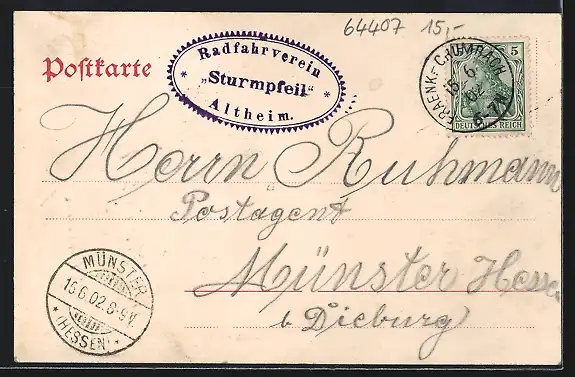 64407 15,-
Postkarte
Radfahrverein
„Sturmpfeil“
Altheim.
FRAENK.-CRUMBACH
15 6
02
6-7N
5
DEUTSCHES REICH
Herrn Ruhmann
Postagent
Münster Hessen
b Dieburg
MÜNSTER
16.6.02.8-9V.
* (HESSEN) *